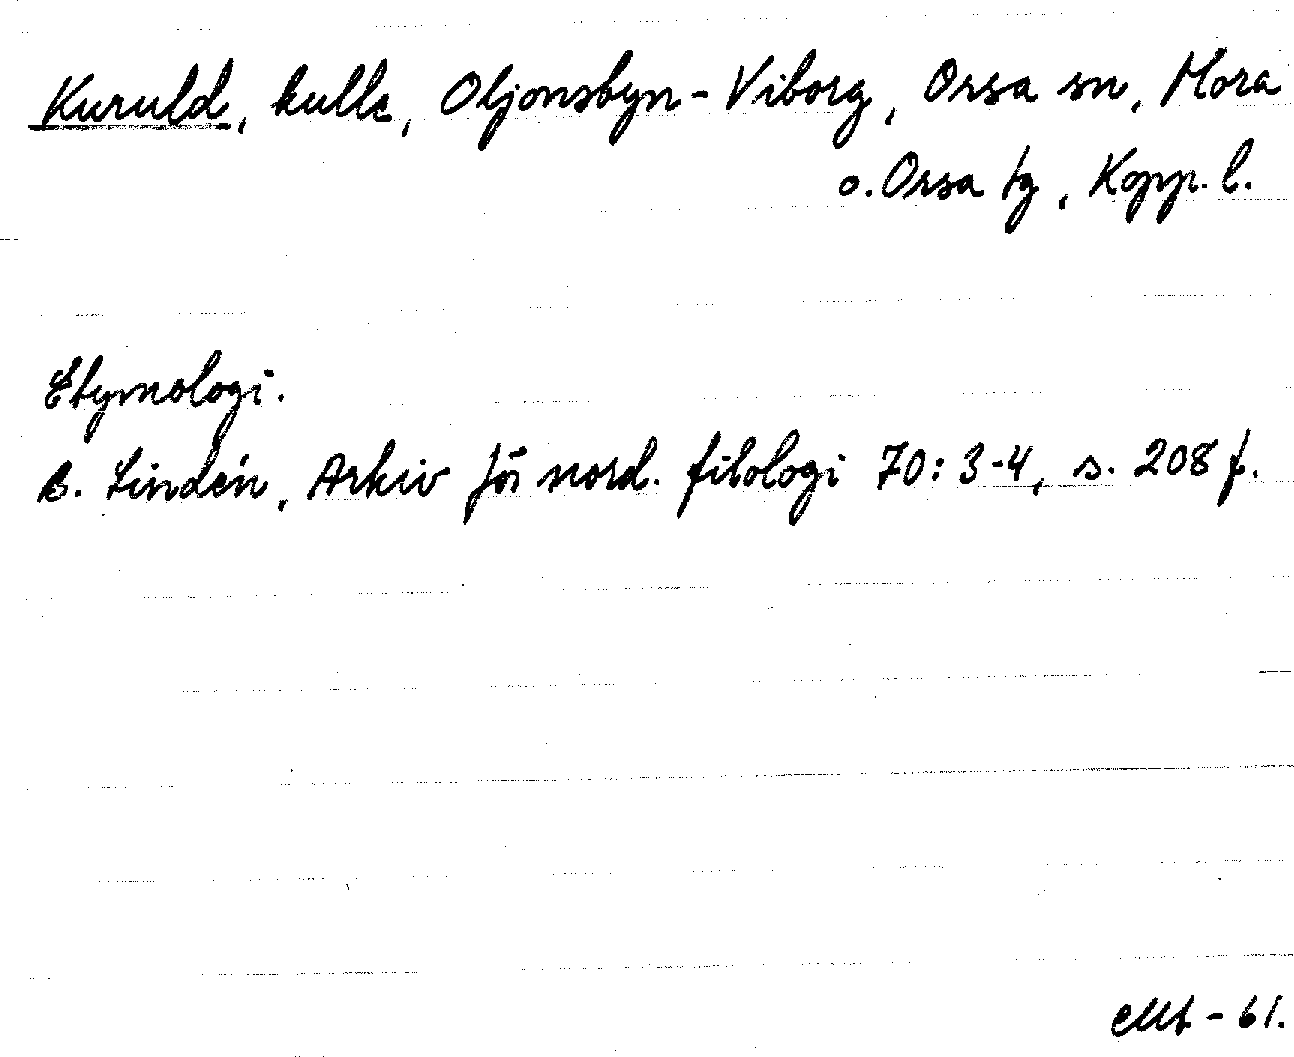 Kuruld, kulle, Oljonsbyn-Viborg, Orsa sn, Mora
o. Orsa tg, Kopp. l.
Etymologi.
B. Lindén, Arkiv för nord. filologi 70: 3-4, s. 208 f.
- 61.